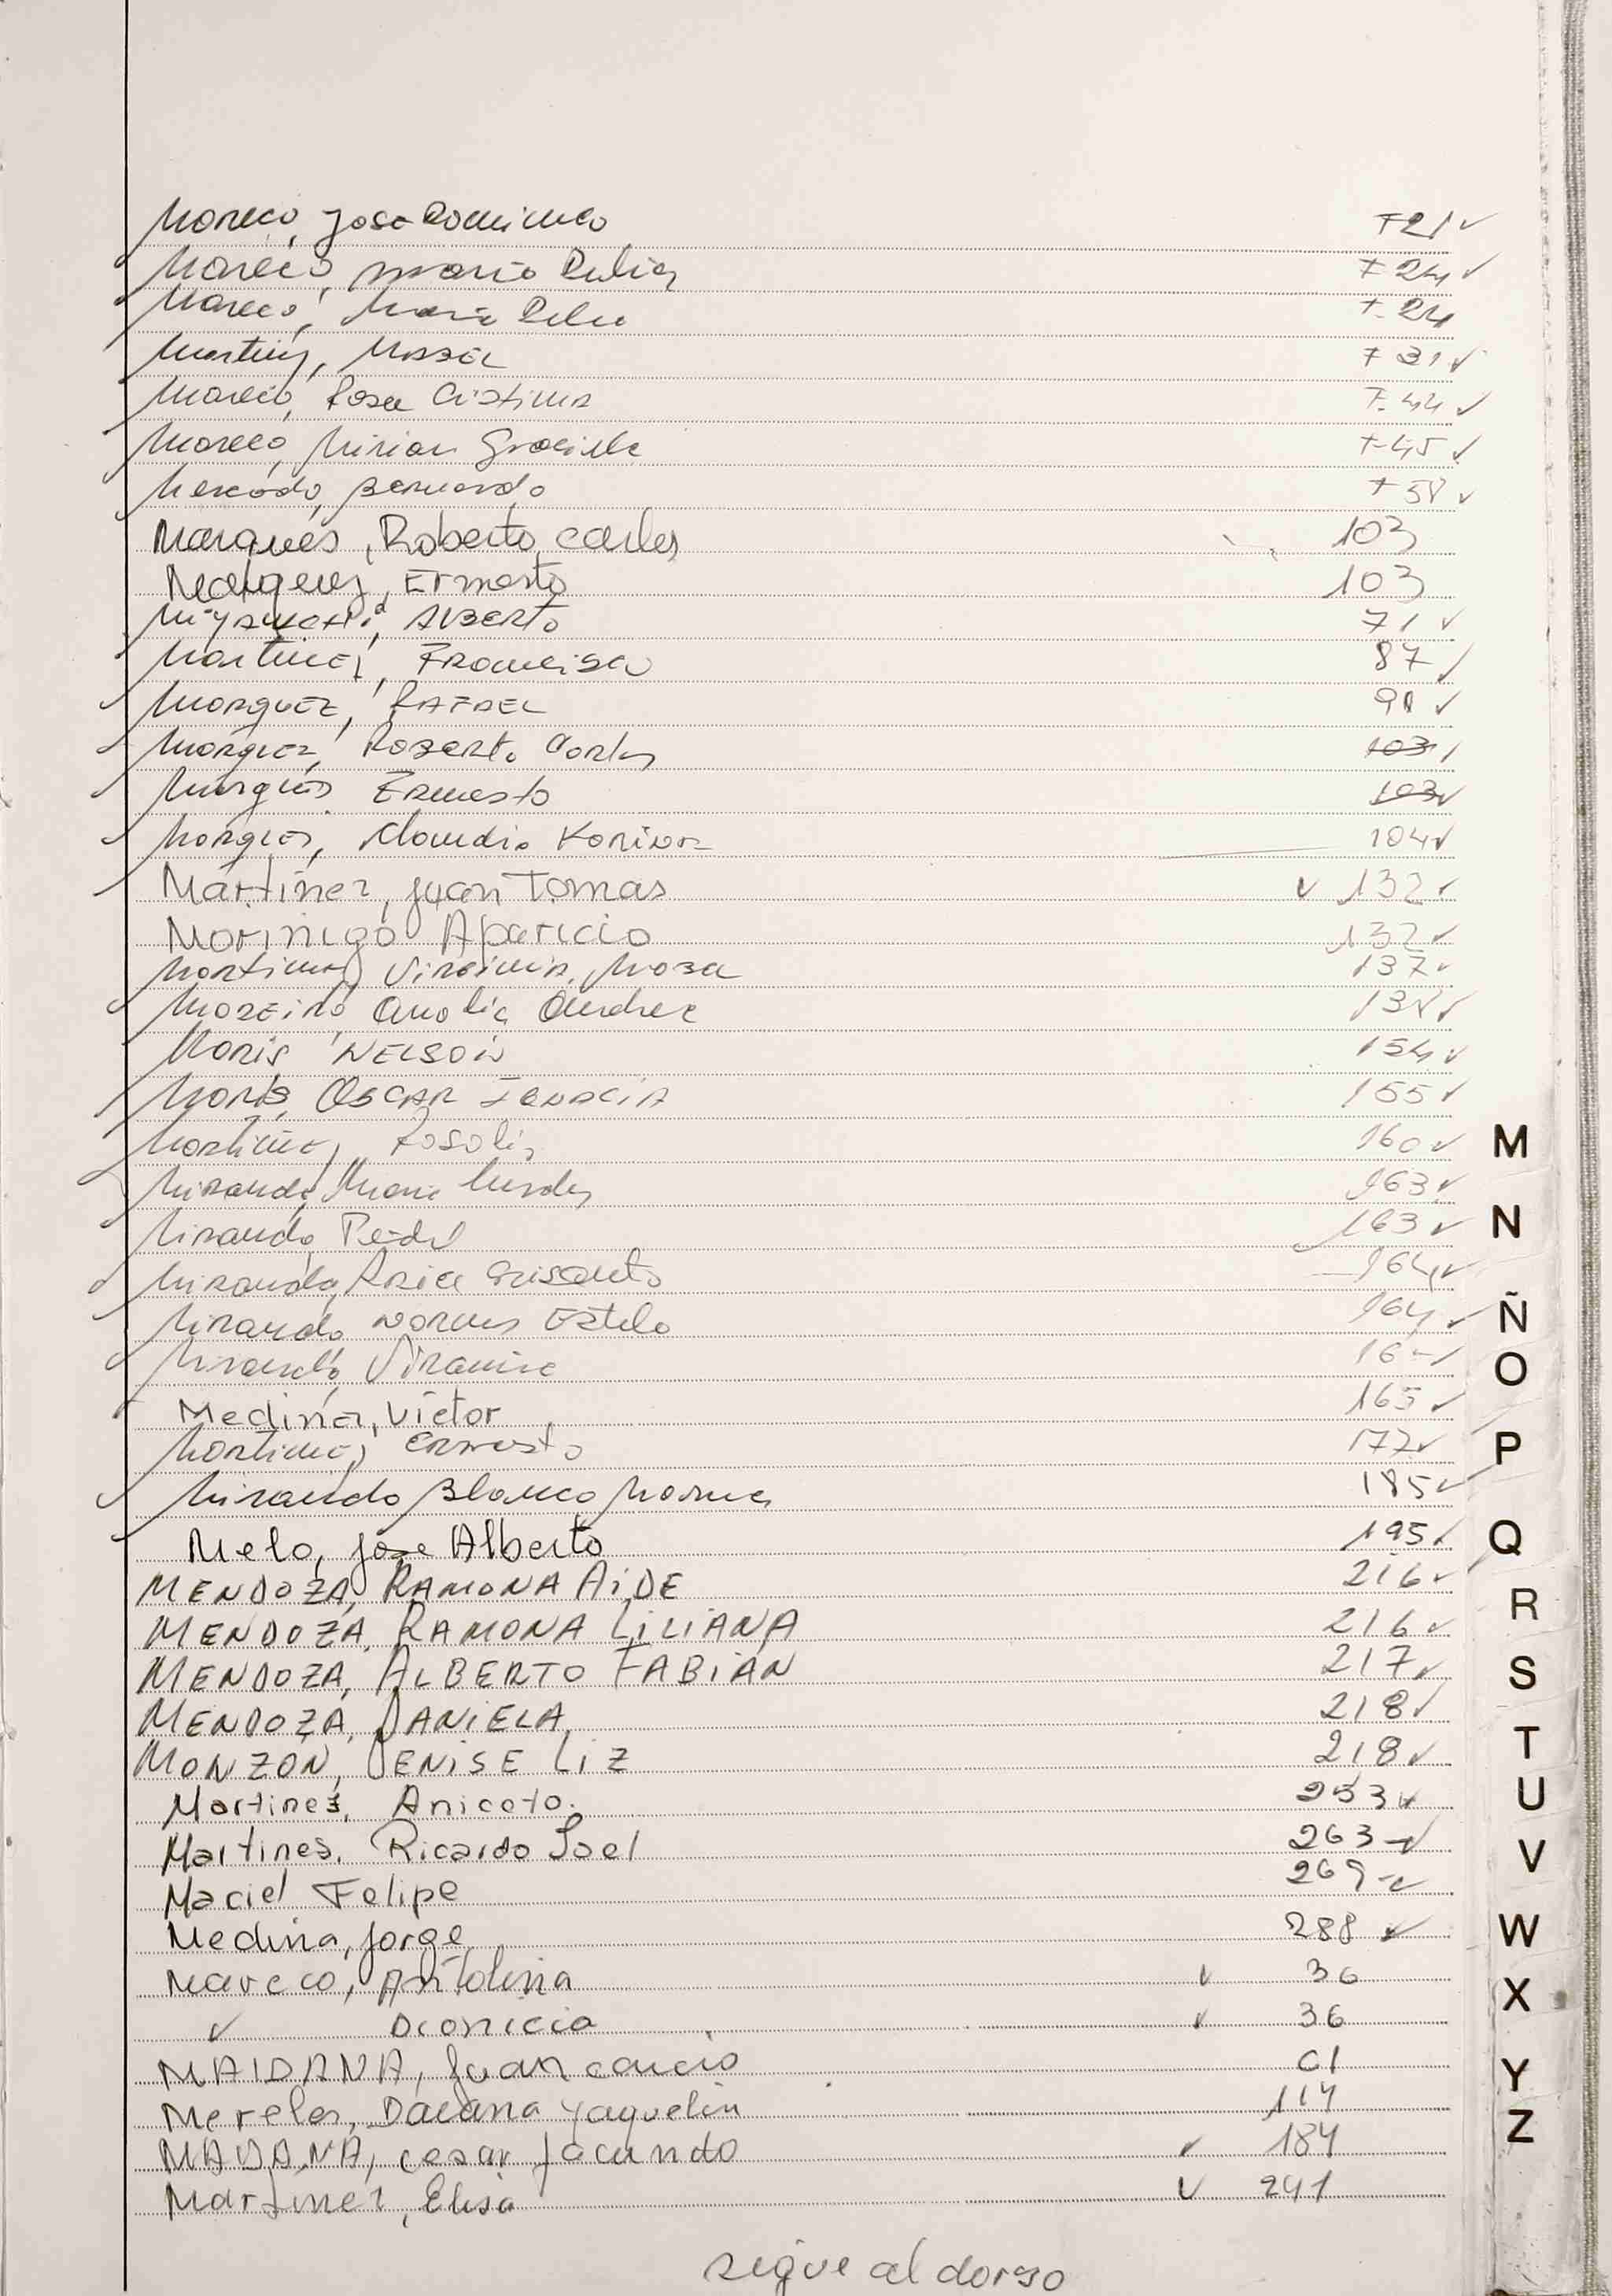 Mareco, Jose Dominico F 21 ✓
Mareco, Maria Delia F 24 ✓
Mareco, Maria Delia F. 24
Martinez, Misael F 31 ✓
Mareco, Rosa Cristina F. 44 ✓
Mareco, Mirian Graciela F 45 ✓
Mercado, Bernardo F 58 ✓
Marques, Roberto Carlos 103
Marques, Ernesto 103
Alberto 71 ✓
Martinez, Francisco 87 ✓
Marquez, Rafael 98 ✓
Marquez, Roberto Carlos 103 ✓
Marques Ernesto 103 ✓
Marques, Claudia Karina 104 ✓
Martinez, Juan Tomas ✓ 132 ✓
Morinigo Aparicio 132 ✓
Martinez, Virginia Rosa 137 ✓
Moreira Analia Andrea 138 ✓
Moris NELSON 154 ✓
Moris, OSCAR IGNACIA 155 ✓
Martinez, Rosalia 160 ✓
Miranda, Maria Lurdes 163 ✓
Miranda, Pedro 163 ✓
Miranda, Crisanto 164 ✓
Miranda, Norma Estela 164 ✓
Miranda, ✓
Medina, Victor 165 ✓
Martinez, Ernesto 172 ✓
Miranda Blanco Norma 185 ✓
Melo, Jose Alberto 195 ✓
MENDOZA, RAMONA AiDE 216 ✓
MENDOZA, RAMONA LiLiANA 216 ✓
MENDOZA, ALBERTO FABiAN 217 ✓
MENDOZA, DANiELA 218 ✓
MONZON, DENiSE LiZ 218 ✓
Martines, Aniceto. 253 ✓
Martines, Ricardo Joel 263 ✓
Maciel Felipe 269 ✓
Medina, Jorge 288 ✓
Mareco, Antolina ✓ 36
✓ Dionicia ✓ 36
MAIDANA, Juan 61
Mereles, Daiana Yaquelin 114
MAIDANA, cesar Facundo ✓ 184
Martinez, Elisa ✓ 241
sigue al dorso
M
N
Ñ
O
P
Q
R
S
T
U
V
W
X
Y
Z